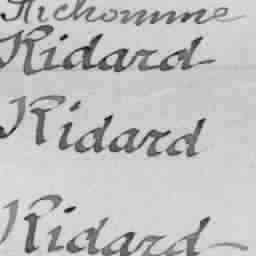 Richomme
Ridard
Ridard
Ridard